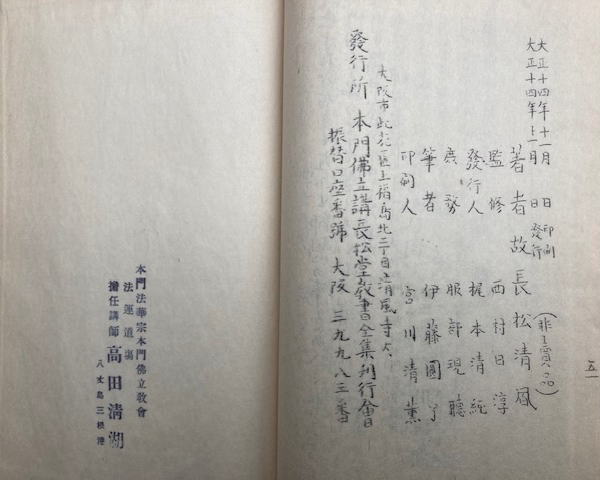 大正十四年十一月 日印刷
大正十四年十一月 日発行
(非賣品)
著者 故 長松清風
監修 西村日淳
發行人 梶本清純
庶務 服部現聽
筆者 伊藤圓了
印刷人 宮川清薫
大阪市此花區上福島北三丁目清風寺内
發行所 本門佛立講長松堂叢書全集刊行會
振替口座番號 大阪 三九九八三番
五一
本門法華宗本門佛立教會
法運道場
擔任講師 高田清湖
八丈島三根港